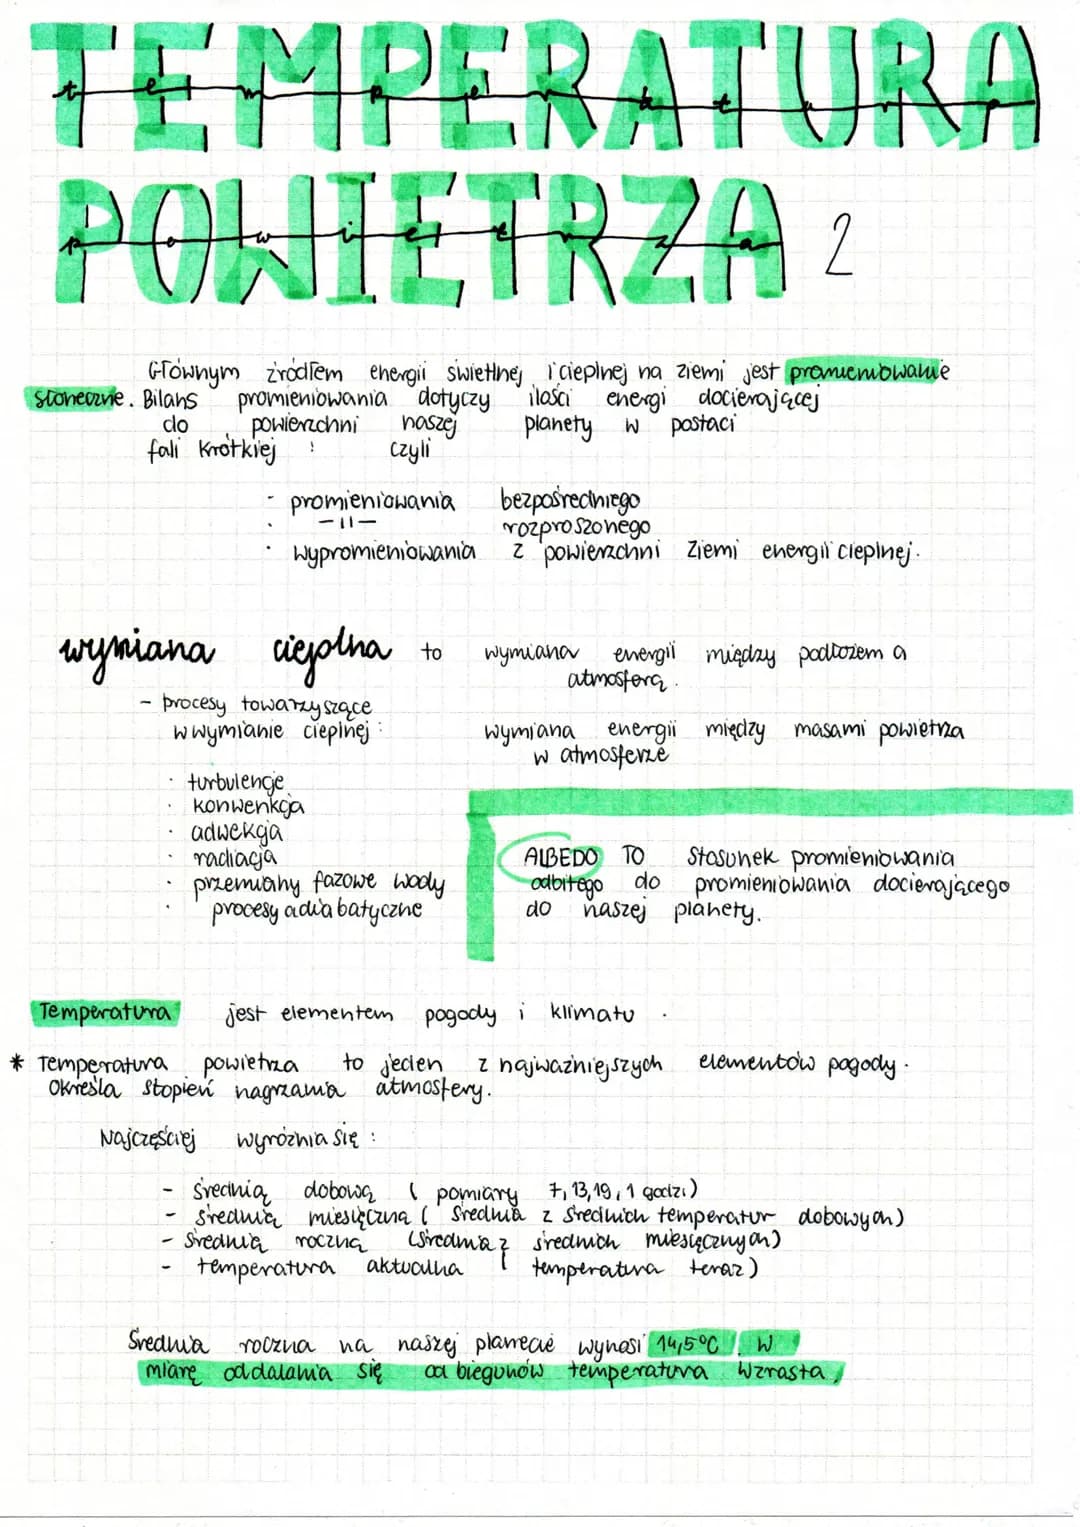 TEMPERATURA
temperatura
POWIETRZA 2
powietrza
Głównym źródłem energii świetlnej i cieplnej na ziemi jest promieniowanie
słoneczne. Bilans promieniowania dotyczy ilości energi docierającej
do powierzchni naszej planety w postaci
fali krótkiej : czyli
- promieniowania bezpośredniego
· -11- rozproszonego
· wypromieniowania z powierzchni Ziemi energii cieplnej.
wymiana cieplna to wymiana energii między podłożem a
atmosferą.
- procesy towarzyszące
w wymianie cieplnej :
wymiana energii między masami powietrza
w atmosferze
· turbulencje
· konwenkcja
· adwekcja
· radiacja
· przemiany fazowe wody
· procesy adiabatyczne
ALBEDO TO stosunek promieniowania
odbitego do promieniowania docierającego
do naszej planety.
Temperatura jest elementem pogody i klimatu .
* Temperatura powietrza to jeden z najważniejszych elementów pogody.
Określa stopień nagrzania atmosfery.
Najczęściej wyróżnia się :
- średnią dobową ( pomiary 7, 13, 19, 1 godzi)
- średnią miesięczną ( średnia z średnich temperatur dobowych)
- średnią roczną (średnia z średnich miesięcznych)
- temperatura aktualna ( temperatura teraz)
Średnia roczna na naszej planecie wynosi 14,5°C. W
miarę oddalania się od biegunów temperatura wzrasta,